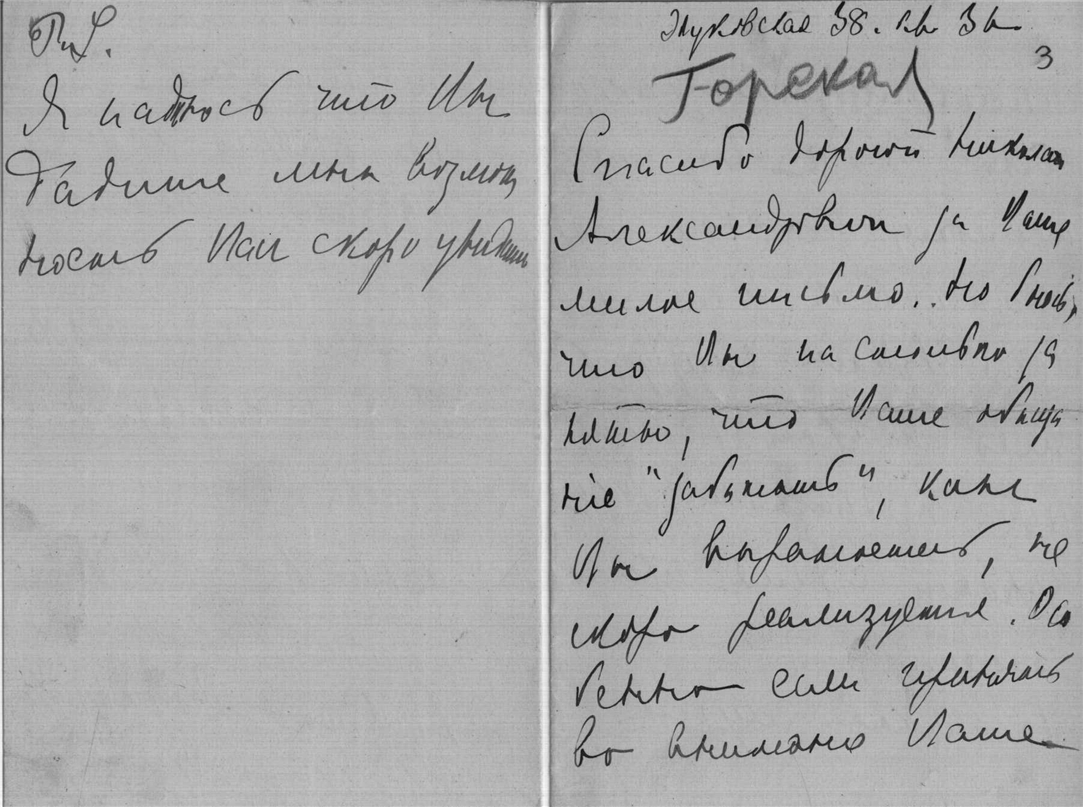 P.S.
Я надѣюсь что Вы
дадите мнѣ возмож
ность Вас скоро увидѣть
Жуковская 38. кв. 36
3
Горская
Спасибо дорогой Николай
Александрович за Ваше
милое письмо. Но боюсь,
что Вы на столько за
няты, что Ваше обѣща
ніе "забѣжать", какъ
Вы выражаетесь, не
скоро реализуется. Осо
бенно если принять
во внимание Ваше